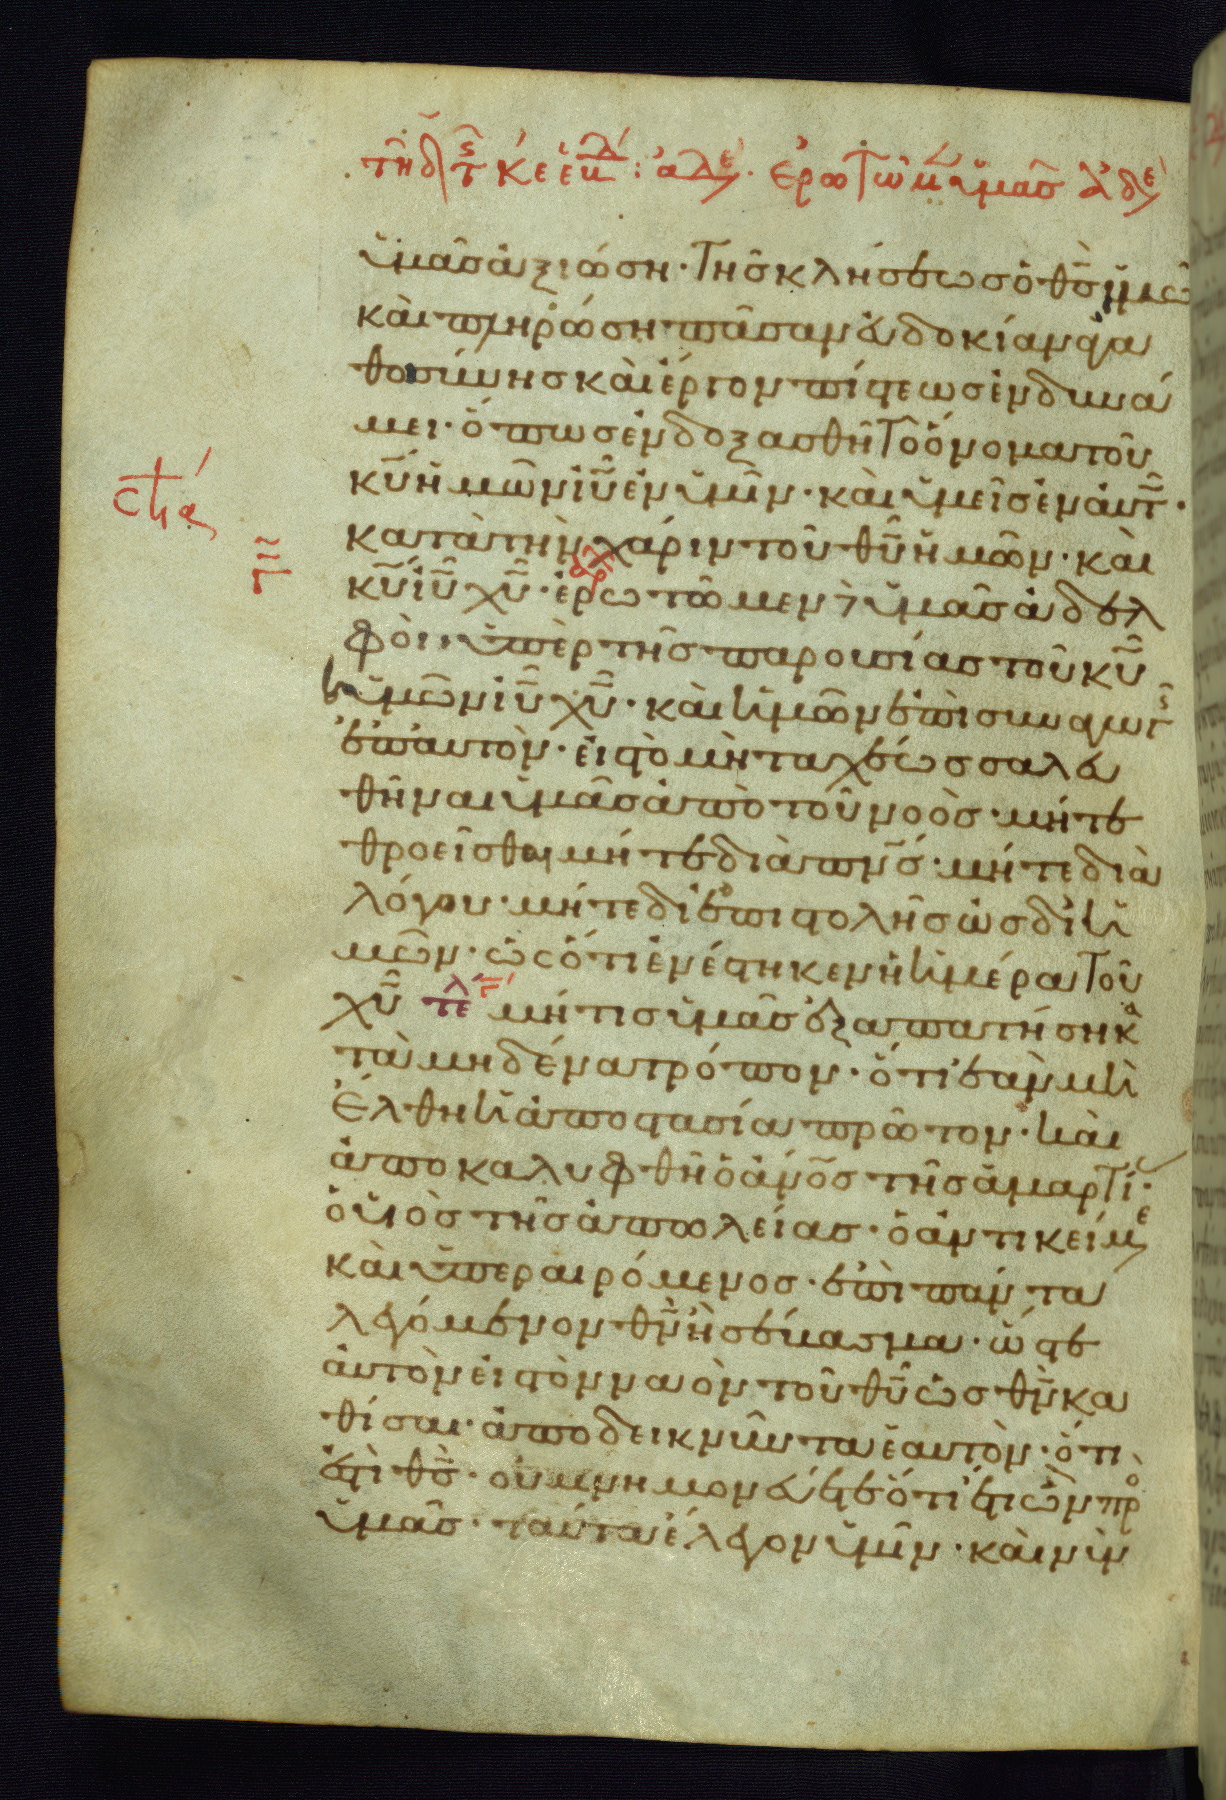 τῆ δ τῆς κε ἑβδ: ἀδελ. ἐρωτῶμεν ὑμᾶς ἀδε
ὑμᾶς ἀξιώση· τῆς κλήσεως ὁ θς ἡμῶ
καὶ πληρώση πᾶσαν εὐδοκίαν ἀγα
θοσύνης καὶ ἔργον πίστεως ἐν δυνά
μει· ὅπως ἐνδοξασθῆ τὸ ὄνομα τοῦ
κυ ἡμῶν ιυ ἐν ὑμῖν· καὶ ὑμεῖς ἐν αυτ·
κατὰ τὴν χάριν τοῦ θυ ἡμῶν· καὶ
κυ ιυ χυ· ἐρωτῶμεν ὑμᾶς ἀδελ
φοὶ· ὑπὲρ τῆς παρουσίας τοῦ κυ
ἡμῶν ιυ χυ· καὶ ἡμῶν ἐπισυναγωγῆς
ἐπ αυτὸν· εἰς τὸ μὴ ταχέως σαλευ
θῆναι ὑμᾶς ἀπὸ τοῦ νοὸς· μήτε
θροεῖσθαι μήτε διὰ πνς· μήτε διὰ
λόγου· μήτε δι ἐπιστολῆς ὡς δι ἡ
μῶν· ὡς ὅτι ἐνέστηκεν ἡ ἡμέρα τοῦ
χυ τελ μή τις ὑμᾶς ἐξαπατήση κα
τὰ μηδένα τρόπον· ὅτι ἐὰν μὴ
ἔλθη ἡ ἀποστασία πρῶτον· καὶ
ἀποκαλυφθῆ ὁ ἀνος τῆς ἁμαρτί·
ὁ υἱὸς τῆς ἀπωλείας· ὁ ἀντικείμε
καὶ ὑπεραιρόμενος· ἐπὶ πάντα
λεγόμενον θν ἢ σέβασμα· ὥστε
αὐτὸν εἰς τὸν ναὸν τοῦ θυ ὡς θν κα
θίσαι· ἀποδεικνῦντα ἑαυτὸν· ὅτι
ἐστὶ θς· οὐ μνημονεύετε ὅτι ἔτι ὢν προ
ὑμᾶς· ταῦτα ἔλεγον ὑμῖν· καὶ νῦν